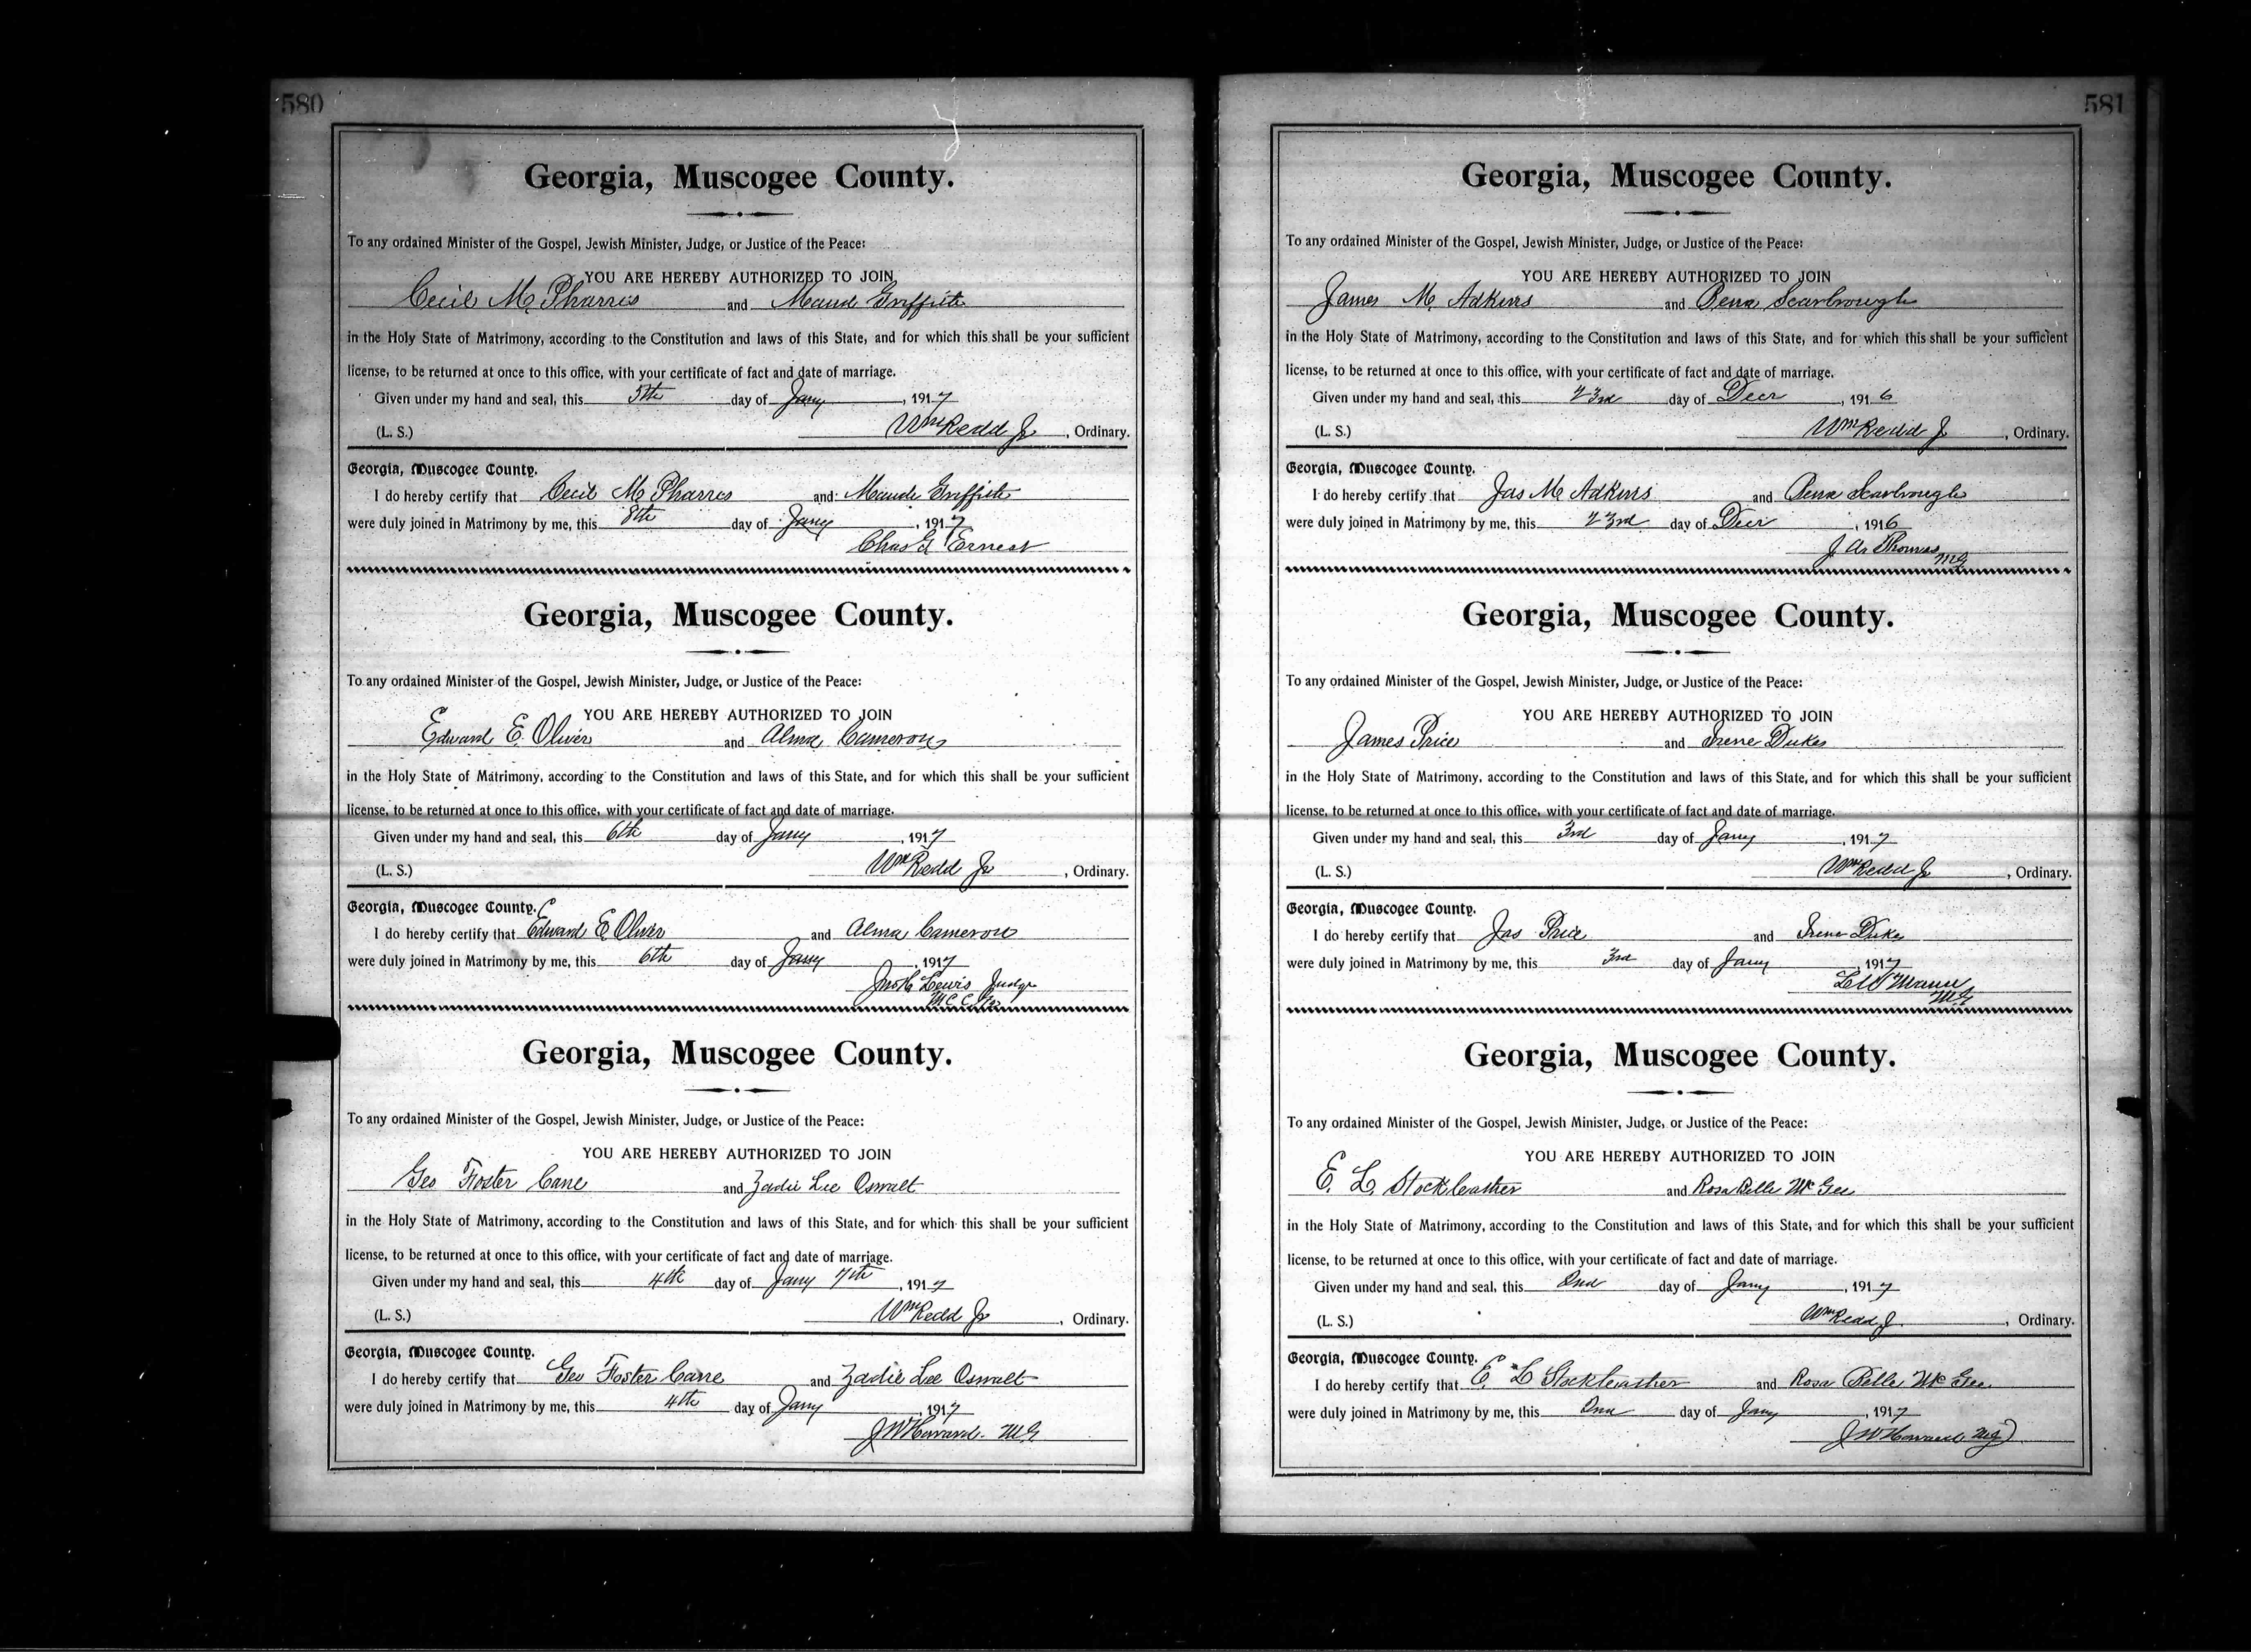 580
Georgia, Muscogee County.
To any ordained Minister of the Gospel, Jewish Minister, Judge, or Justice of the Peace:
YOU ARE HEREBY AUTHORIZED TO JOIN
Cecil M. Pharris and Maud Griffith
in the Holy State of Matrimony, according to the Constitution and laws of this State, and for which this shall be your sufficient
license, to be returned at once to this office, with your certificate of fact and date of marriage.
Given under my hand and seal, this 5th day of Jany, 1917
(L. S.) Wm Redd Jr, Ordinary.
Georgia, Muscogee County.
I do hereby certify that Cecil M Pharris and Maude Griffith
were duly joined in Matrimony by me, this 8th day of Jany, 1917
Chas G Ernest
Georgia, Muscogee County.
To any ordained Minister of the Gospel, Jewish Minister, Judge, or Justice of the Peace:
YOU ARE HEREBY AUTHORIZED TO JOIN
Edward E. Oliver and Alma Cameron
in the Holy State of Matrimony, according to the Constitution and laws of this State, and for which this shall be your sufficient
license, to be returned at once to this office, with your certificate of fact and date of marriage.
Given under my hand and seal, this 6th day of Jany, 1917
(L. S.) Wm Redd Jr, Ordinary.
Georgia, Muscogee County.
I do hereby certify that Edward E Oliver and Alma Cameron
were duly joined in Matrimony by me, this 6th day of Jany, 1917
Lewis Judge
M.C.C. Ga
Georgia, Muscogee County.
To any ordained Minister of the Gospel, Jewish Minister, Judge, or Justice of the Peace:
YOU ARE HEREBY AUTHORIZED TO JOIN
Geo Foster Cane and Zadie Lee Oswalt
in the Holy State of Matrimony, according to the Constitution and laws of this State, and for which this shall be your sufficient
license, to be returned at once to this office, with your certificate of fact and date of marriage.
Given under my hand and seal, this 4th day of Jany 7th, 1917
(L. S.) Wm Redd Jr, Ordinary.
Georgia, Muscogee County.
I do hereby certify that Geo Foster Cane and Zadie Lee Oswalt
were duly joined in Matrimony by me, this 4th day of Jany, 1917
J W Howard. M G
581
Georgia, Muscogee County.
To any ordained Minister of the Gospel, Jewish Minister, Judge, or Justice of the Peace:
YOU ARE HEREBY AUTHORIZED TO JOIN
James M. Adkins and Pena Scarbrough
in the Holy State of Matrimony, according to the Constitution and laws of this State, and for which this shall be your sufficient
license, to be returned at once to this office, with your certificate of fact and date of marriage.
Given under my hand and seal, this 23rd day of Decr, 1916
(L. S.) Wm Redd Jr, Ordinary.
Georgia, Muscogee County.
I do hereby certify that Jas M Adkins and Pena Scarbrough
were duly joined in Matrimony by me, this 23rd day of Decr, 1916
J A Thomas
M G
Georgia, Muscogee County.
To any ordained Minister of the Gospel, Jewish Minister, Judge, or Justice of the Peace:
YOU ARE HEREBY AUTHORIZED TO JOIN
James Price and Irene Dukes
in the Holy State of Matrimony, according to the Constitution and laws of this State, and for which this shall be your sufficient
license, to be returned at once to this office, with your certificate of fact and date of marriage.
Given under my hand and seal, this 3rd day of Jany, 1917
(L. S.) Wm Redd Jr, Ordinary.
Georgia, Muscogee County.
I do hereby certify that Jas Price and Irene Dukes
were duly joined in Matrimony by me, this 3rd day of Jany, 1917
M G
Georgia, Muscogee County.
To any ordained Minister of the Gospel, Jewish Minister, Judge, or Justice of the Peace:
YOU ARE HEREBY AUTHORIZED TO JOIN
E. L. Stockleather and Rosa Belle McGee
in the Holy State of Matrimony, according to the Constitution and laws of this State, and for which this shall be your sufficient
license, to be returned at once to this office, with your certificate of fact and date of marriage.
Given under my hand and seal, this 2nd day of Jany, 1917
(L. S.) Wm Redd Jr, Ordinary.
Georgia, Muscogee County.
I do hereby certify that E. L Stockleather and Rosa Belle McGee
were duly joined in Matrimony by me, this 2nd day of Jany, 1917
J W Howard M G